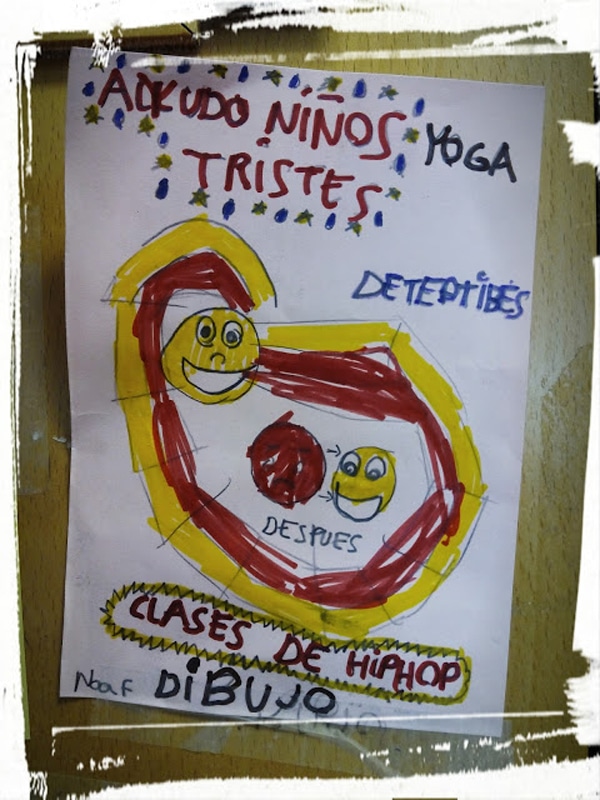 AYKUDO NIÑOS
TRISTES
YOGA
DETERTIBES
DESPUES
CLASES DE HIPHOP
Noaf
DIBUJO